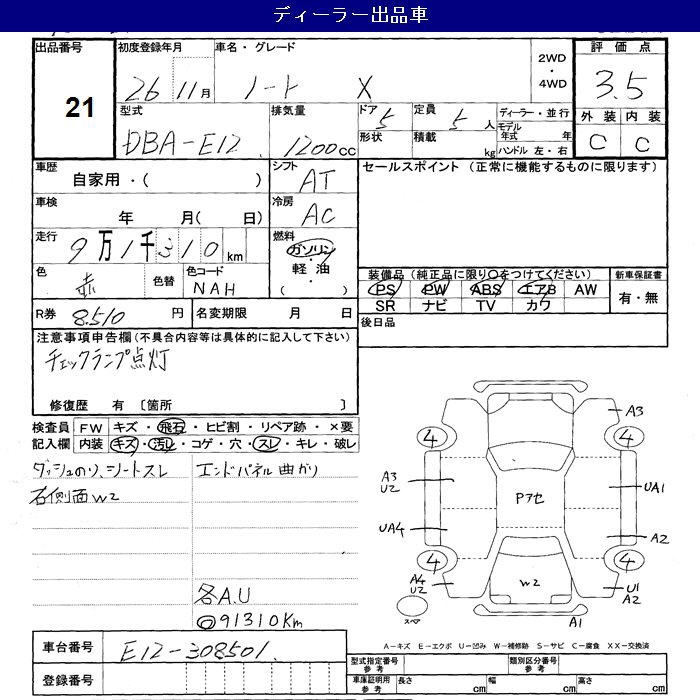 ディーラー出品車
出品番号 21
初度登録年月 26 11月
車名・グレード ノート X
2WD・4WD
評価点 3.5
外装 C 内装 C
型式 DBA-E12
排気量 1200cc
ドア 5 形状
定員 5人 積載 kg
ディーラー・並行
モデル年式 年
ハンドル 左・右
車歴 自家用・( )
シフト AT
セールスポイント (正常に機能するものに限ります)
車検 年 月( 日)
冷房 AC
走行 9万1千310km
燃料 ガソリン・軽油 ( )
色 赤 色替 色コード NAH
装備品(純正品に限り○をつけてください)
PS PW ABS エアB AW
SR ナビ TV カワ
新車保証書 有・無
R券 8,510円 名変期限 月 日
後日品
注意事項申告欄(不具合内容等は具体的に記入して下さい)
チェックランプ点灯
修復歴 有 [箇所 ]
検査員記入欄
FW キズ・飛石・ヒビ割・リペア跡・×要
内装 キズ・汚レ・コゲ・穴・スレ・キレ・破レ
ダッシュのり、シートスレ
エンドパネル曲がり
右側面W2
各A.U
◎91310Km
A3
4 4
A3
U2
UA1
Pアセ
UA4
A2
4 4
A4
U2
W2
U1
A2
スペア
A1
A-キズ E-エクボ U-凹み W-補修跡 S-サビ C-腐食 XX-交換済
車台番号 E12-308501
登録番号
型式指定番号 参考
類別区分番号 参考
車庫証明用 参考 長さ cm 幅 cm 高さ cm